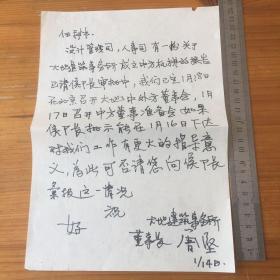 设计管理司、人事司有一报关于
大地建筑事务所成立中方机构的报告
已请侯部长审批中,我们已定1月18日
在北京召开大地中外方董事会,1月
17日召开中方董事准备会,如果
侯部长批示能在1月16日下达
对我们工作有更大的指导意
义,为此可否请您向侯部长
汇报这一情况
祝
好
大地建筑事务所
董事长
1/14日.